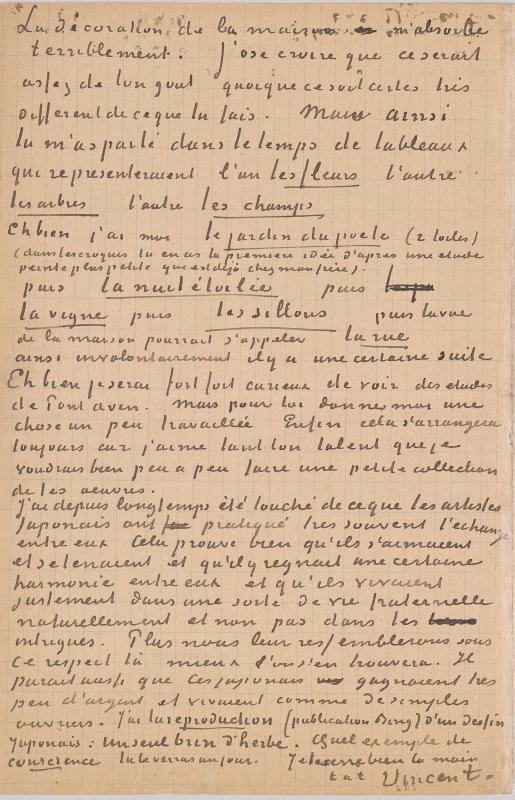 La décoration de la maison m'absorbe
terriblement. J'ose croire que ce serait
assez de ton gout quoique ce soit certes très
different de ce que tu fais. Mais ainsi
tu m'as parlé dans le temps de tableaux
qui representeraient l'un les fleurs l'autre
les arbres l'autre les champs
Eh bien j'ai moi le jardin du poete (2 toiles)
(dans les croquis tu en as la première idée d'après une etude
peinte plus petite qui est déjà chez mon frère).
puis la nuit étoilée puis
la vigne puis les sillons puis la vue
de la maison pourrait s'appeler la rue
ainsi involontairement il y a une certaine suite
Eh bien je serai fort fort curieux de voir des etudes
de Pont aven. Mais pour toi donne moi une
chose un peu travaillée Enfin cela s'arrangera
toujours car j'aime tant ton talent que je
voudrais bien peu a peu faire une petite collection
de tes oeuvres.
J'ai depuis longtemps été touché de ce que les artistes
Japonais ont pratiqué très souvent l'échange
entre eux Cela prouve bien qu'ils s'aimaient
et se tenaient et qu'il y regnait une certaine
harmonie entre eux et qu'ils vivaient
justement dans une sorte de vie fraternelle
naturellement et non pas dans les
intrigues. Plus nous leur ressemblerons sous
ce respect là mieux l'on s'en trouvera. Il
parait aussi que ces japonais gagnaient très
peu d'argent et vivaient comme de simples
ouvriers. J'ai la reproduction (publication Bing) d'un dessin
Japonais: un seul brin d'herbe. Quel exemple de
conscience tu le verras un jour. Je te serre bien la main
t. à t. Vincent.